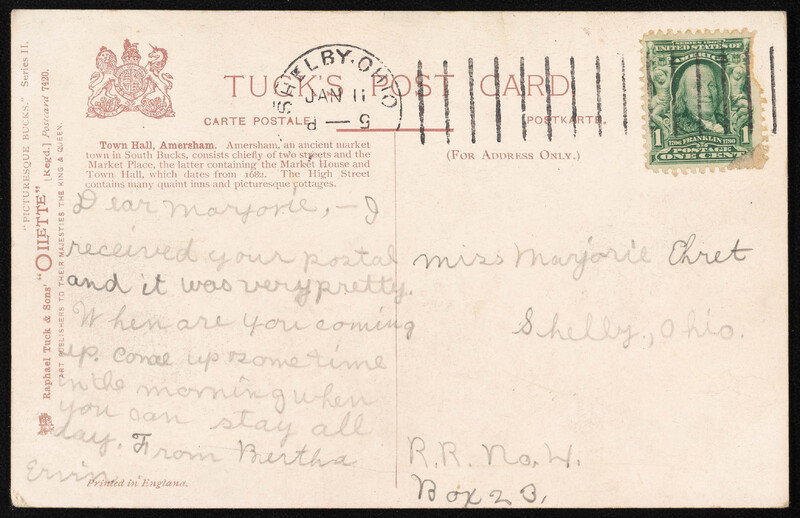 "PICTURESQUE BUCKS." Series II.
Raphael Tuck & Sons' "OILETTE" [Regd.] Postcard 7420.
ART PUBLISHERS TO THEIR MAJESTIES THE KING & QUEEN.
TUCK'S POST CARD
CARTE POSTALE
POSTKARTE.
(FOR ADDRESS ONLY.)
SHELBY, OHIO
JAN 11
5 P
SERIES 1902
UNITED STATES OF
AMERICA
1706 FRANKLIN 1790
1 POSTAGE 1
ONE CENT
Town Hall, Amersham. Amersham, an ancient market
town in South Bucks, consists chiefly of two streets and the
Market Place, the latter containing the Market House and
Town Hall, which dates from 1682. The High Street
contains many quaint inns and picturesque cottages.
Dear Marjorie, — I
received your postal
and it was very pretty.
When are you coming
up. Come up some time
in the morning when
you can stay all
day. From Bertha
Ervin.
Miss Marjorie Ehret
Shelby, Ohio.
R. R. No.
Box 23,
Printed in England.